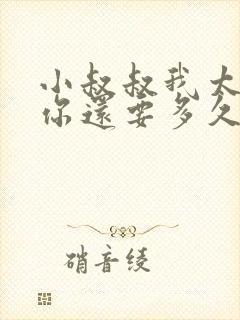 小叔叔我太
你還要多久
硝音绫